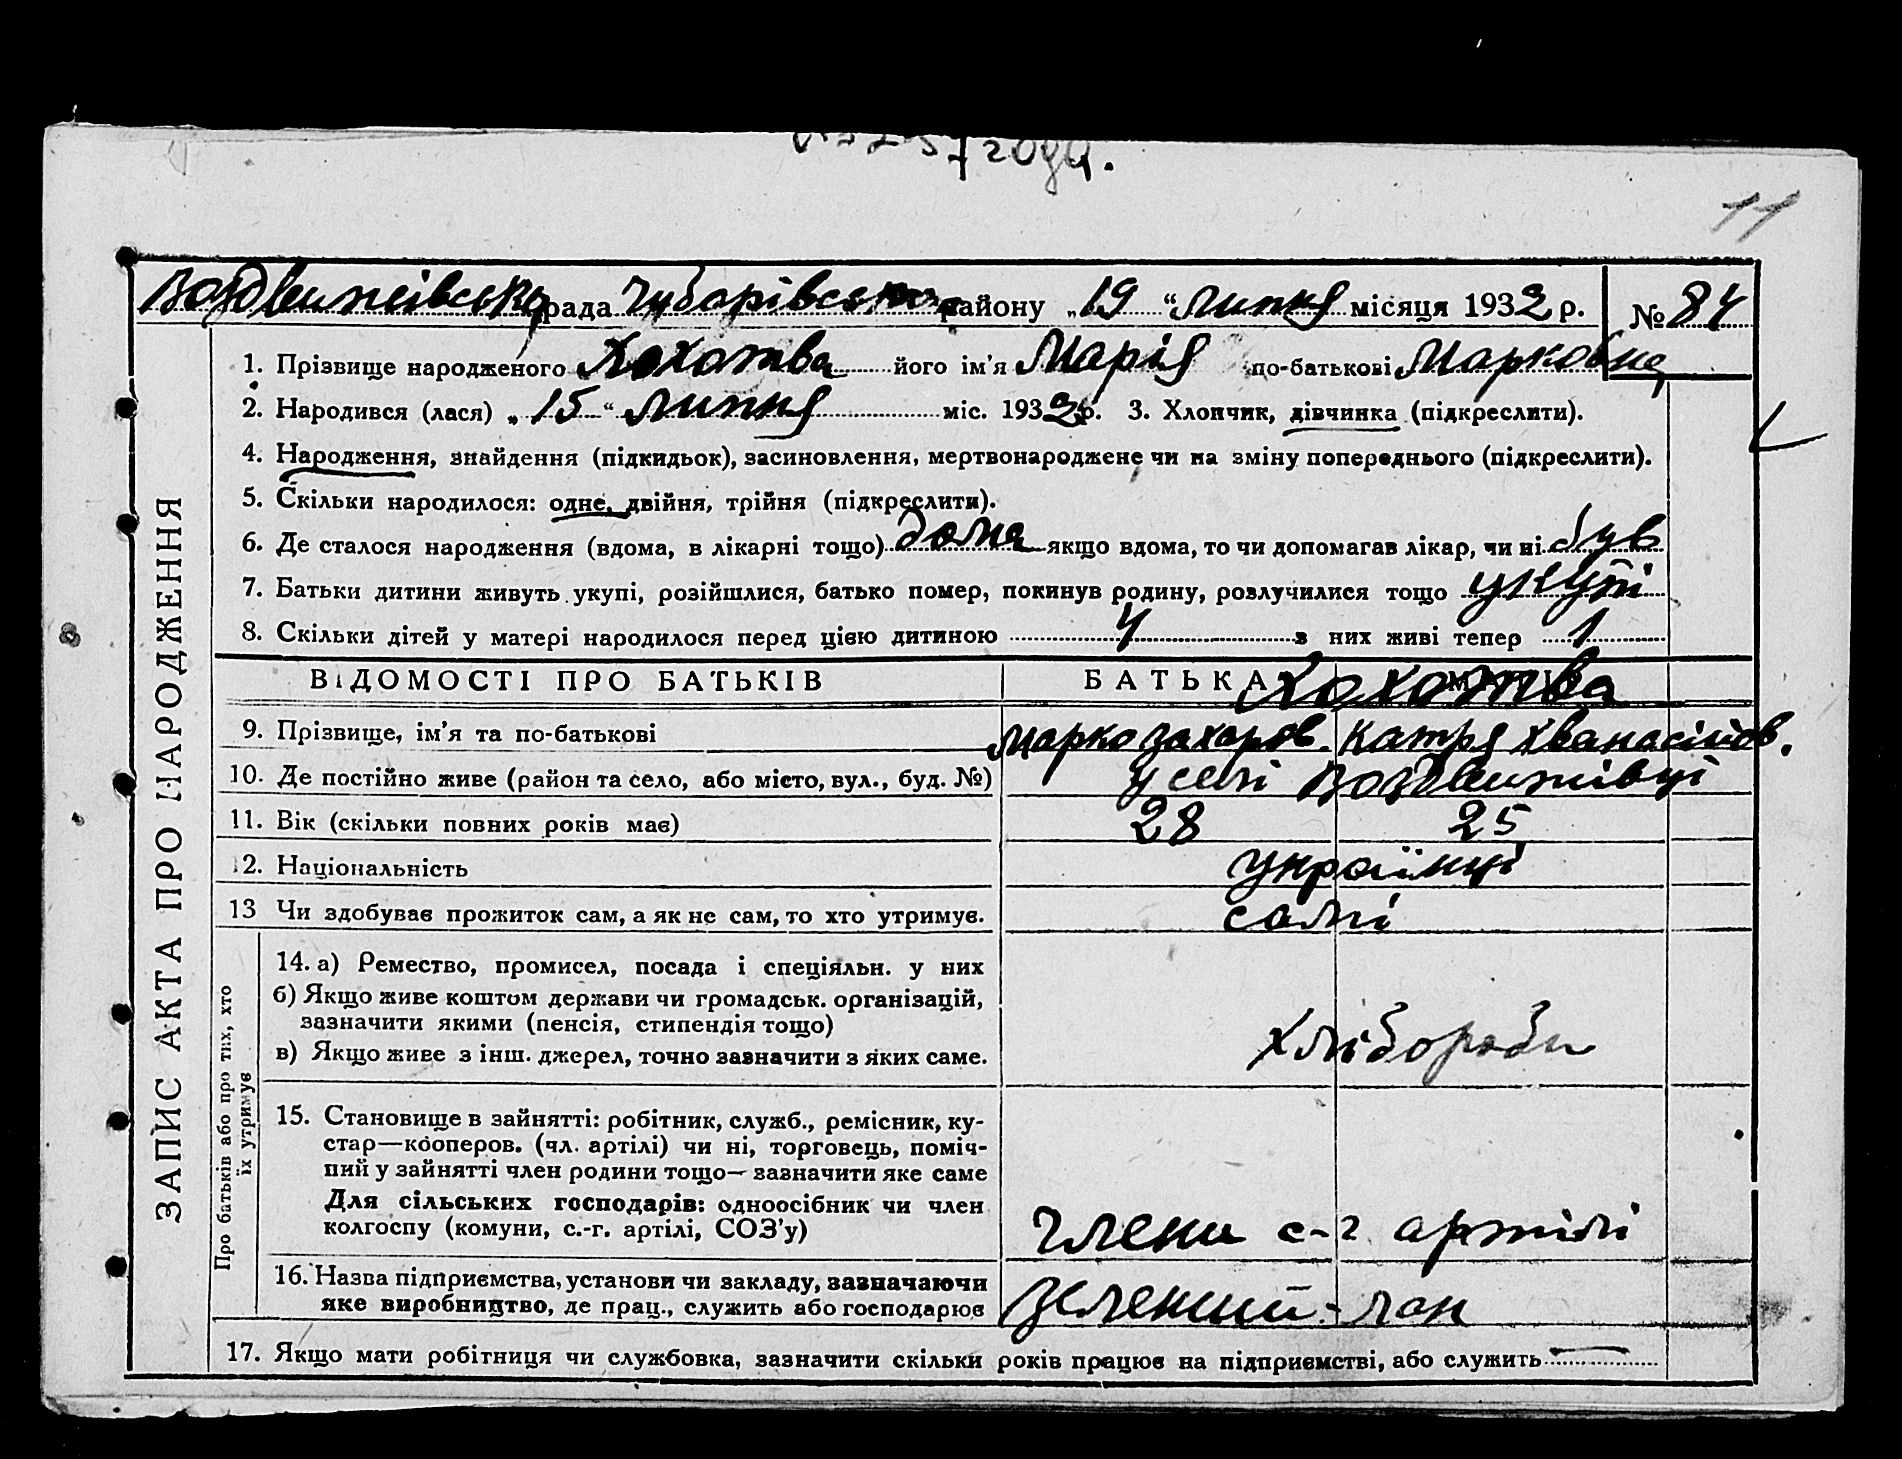 года.
11
Воздвижівська рада Чубарівського району „19“ Липня місяця 1932 р. № 84
1. Прізвище народженого Хохотва його ім'я Марія по-батькові Марковна
2. Народився (лася) „15“ Липня міс. 1932 р. 3. Хлопчик, дівчинка (підкреслити).
4. Народження, знайдення (підкидьок), засиновлення, мертвонароджене чи на зміну попереднього (підкреслити).
5. Скільки народилося: одне, двійня, трійня (підкреслити).
6. Де сталося народження (вдома, в лікарні тощо) дома якщо вдома, то чи допомагав лікар, чи ні був
7. Батьки дитини живуть укупі, розійшлися, батько помер, покинув родину, розлучилися тощо укупі
8. Скільки дітей у матері народилося перед цією дитиною 4 з них живі тепер 1
ВІДОМОСТІ ПРО БАТЬКІВ БАТЬКА Хохотва
9. Прізвище, ім'я та по-батькові Марко Захаров. Катря Хванасіїов.
10. Де постійно живе (район та село, або місто, вул., буд. №) у селі Воздвижівці
11. Вік (скільки повних років має) 28 25
12. Національність українці
13 Чи здобуває прожиток сам, а як не сам, то хто утримує. самі
14. а) Ремество, промисел, посада і спеціяльн. у них
б) Якщо живе коштом держави чи громадськ. організацій,
зазначити якими (пенсія, стипендія тощо)
в) Якщо живе з інш. джерел, точно зазначити з яких саме. хлібороби
15. Становище в зайнятті: робітник, служб., ремісник, ку-
стар—кооперов. (чл. артілі) чи ні, торговець, поміч-
ний у зайнятті член родини тощо— зазначити яке саме
Для сільських господарів: одноосібник чи член
колгоспу (комуни, с.-г. артілі, СОЗ'у) члени с-г артілі
16. Назва підприємства, установи чи закладу, зазначаючи
яке виробництво, де прац., служить або господарює Зелений-лан
17. Якщо мати робітниця чи службовка, зазначити скільки років працює на підприємстві, або служить —
ЗАПИС АКТА ПРО НАРОДЖЕННЯ
Про батьків або про тих, хто
їх утримує